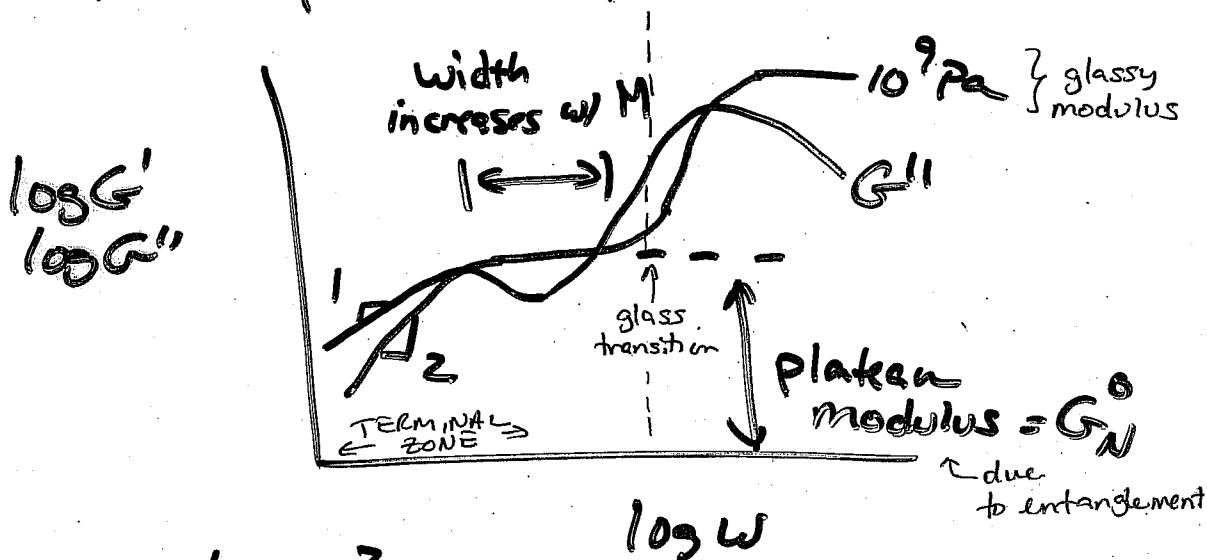 width
increases w/ M
10⁹ Pa } glassy
modulus
log G'
log G"
G"
1
2
glass
transition
plateau
modulus = G°N
TERMINAL
ZONE
due
to entanglement
log ω